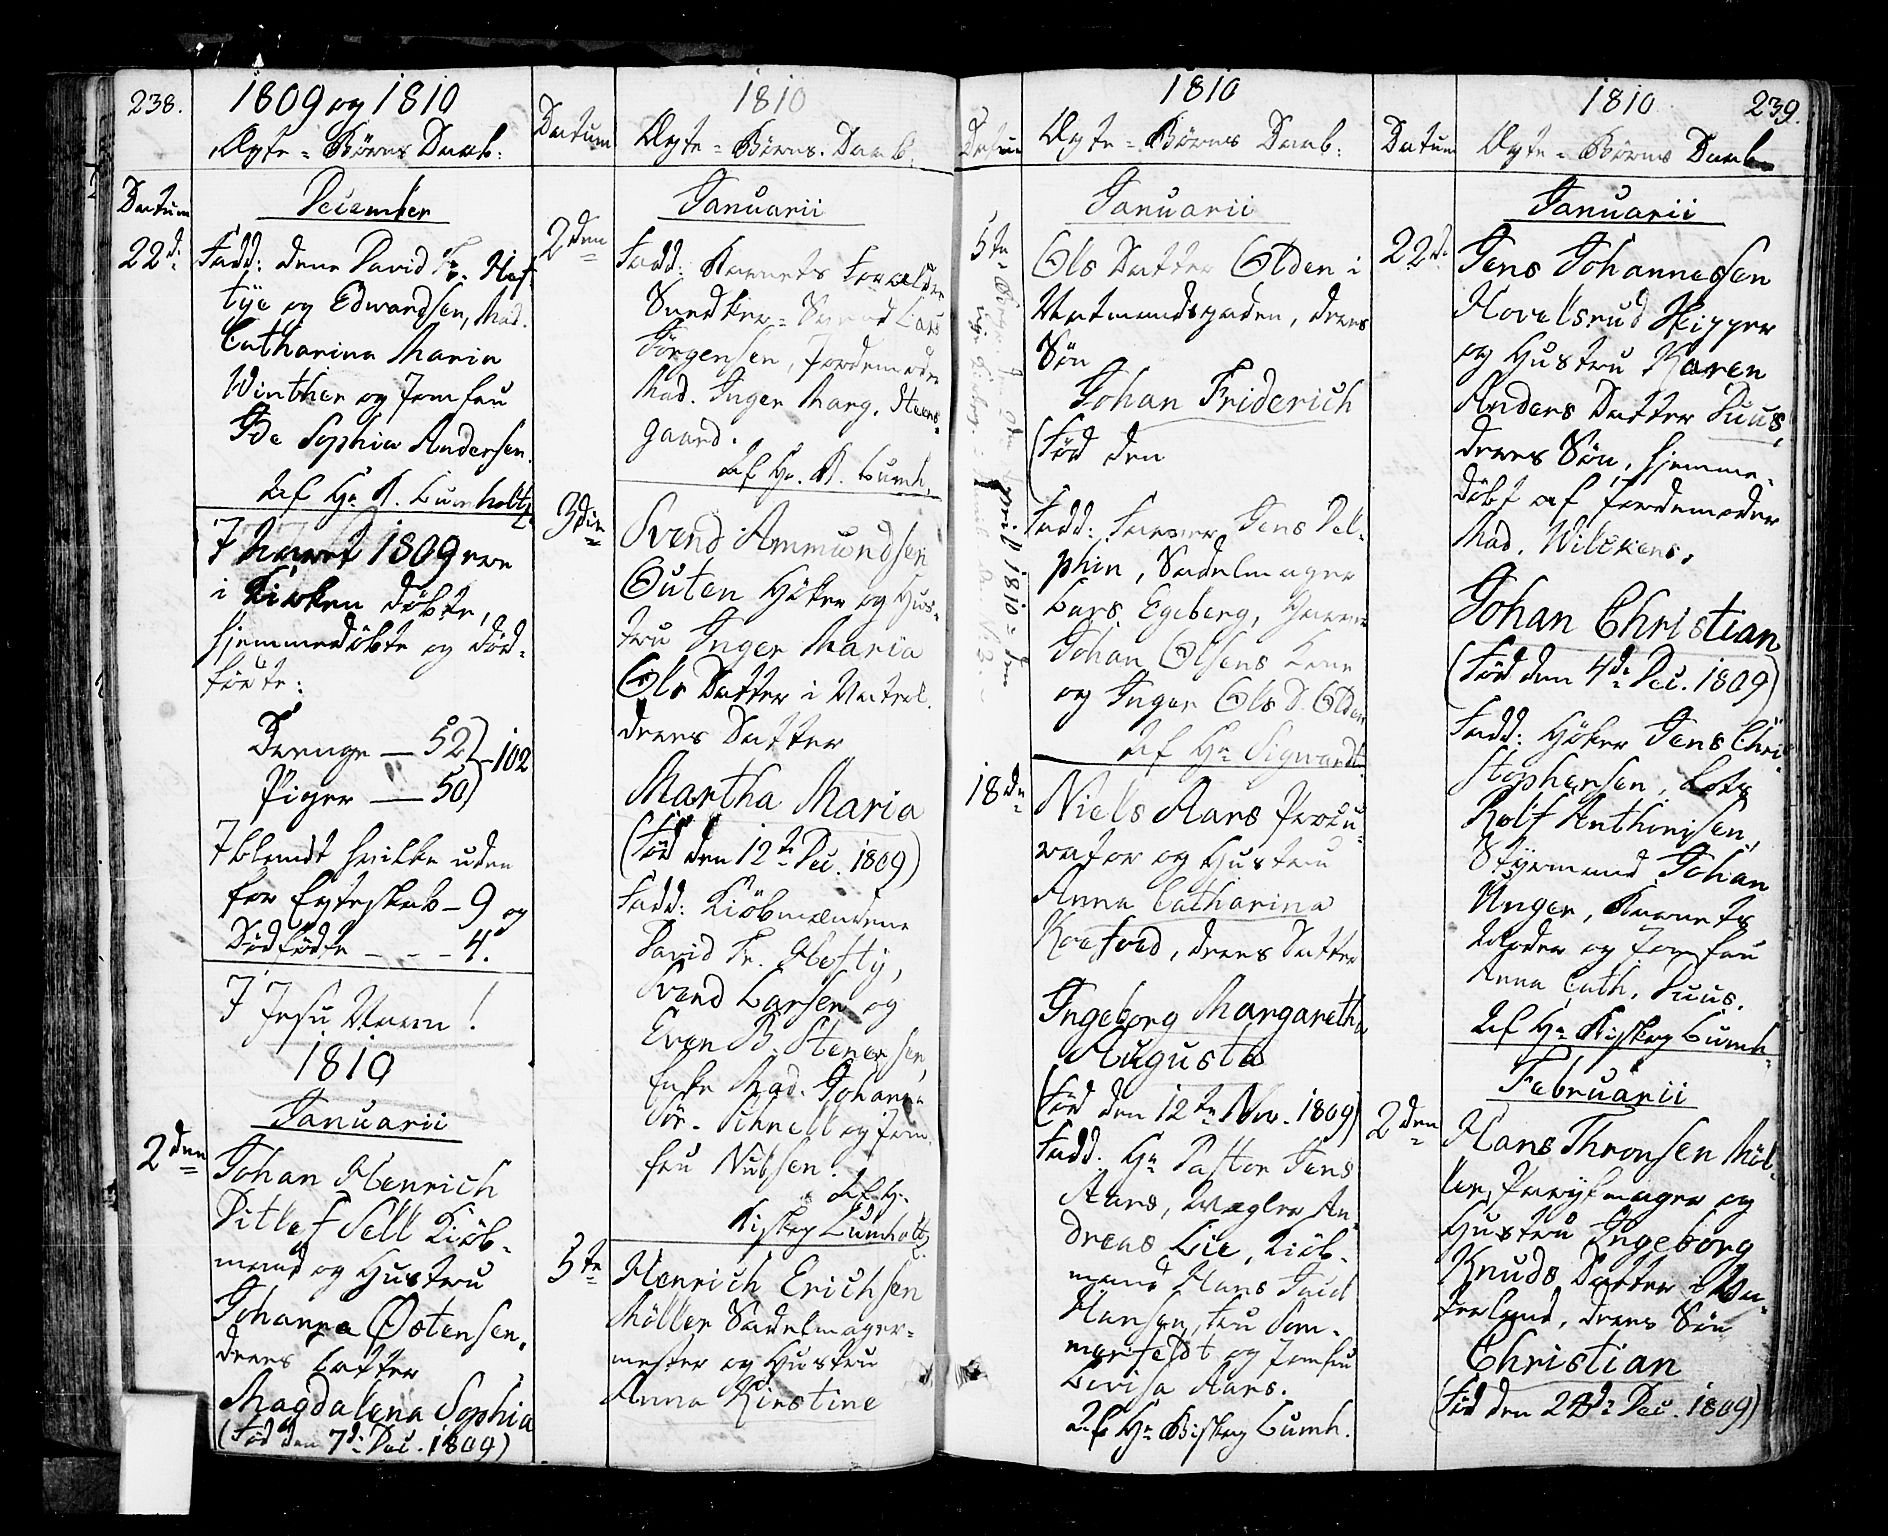 238.
1809 og 1810
Ægte = Børns Daab:
Datum
December
22d:
Fadd: dene David Fr. Hef-
tÿe og Edwardsen, Mad.
Catharina Maria
Winther og Jomfru
Ide Sophia Andersen.
Af Hr. B. Lumholtz
I Aaret 1809 ere
i Kirken døbte,
hjemmedøbte og død-
fødte:
Drenge — 52
Piger — 50
102
Iblandt hvilke uden
for Egteskab – 9 og
Dødfødte – – – 4.
I Jesu Navn!
1810
Januarii
2den
Johan Henrich
Ditlef Sell Kiöb-
mand og Hustru
Johanna Østensen,
deres Datter
Magdalena Sophia
(Fød den 7d: Dec. 1809)
Datum
1810
Ægte = Børns. Daab:
Januarii
2den
Fadd: Barnets Forældre
Snedker = Svend Lars
Jörgensen, Jordemoder
Mad. Inger Marg. Steens-
gaard.
Af Hr. B. Lumh.
3die
Svend Ammundsen
Outen Höker og Hus-
tru Inger Maria
Ols Datter i Vaterl.
deres Datter
Martha Maria
(Fød den 12te Dec. 1809)
Fadd: Kiöbmændene
David Fr. Hefty,
Svend Larsen og
Even B. Stenersen,
Enke Mad. Johanna
Sör. Schnell og Jom-
fru Nubsen.
Af Hr.
Biskop Lumholtz.
5te
Henrich Erichsen
Möller Sadelmager-
mester og Hustru
Anna Kirstine
Datum
1810
Ægte = Børns Daab:
Januarii
5te
april 1810 = den
Ols Datter Olden i
Vatmandsgaden, deres
Søn
Johan Friderich
(Fød den
Fadd: Farver Jens Del-
phin, Sadelmager
Lars Egeberg, Farver
Johan Olsens Kone
og Inger Ols D. Olden
Af Hr. Sigwardt.
18de
Niels Aars Procu-
rator og Hustru
Anna Catharina
Krefted, deres Datter
Ingeborg Margaretha
Augusta
(Fød den 12te Nov. 1809)
Fadd. Hr. Pastor Jens
Aars, Mægler An-
dreas Lie, Kiöb-
mand Hans Juul
Hansen, Fru Som-
merfeldt og Jomfru
Lovisa Aars.
Af Hr. Biskop Lumh.
Datum
1810
239.
Ægte = Børns Daab
Januarii
22d:
Jens Johannesen
Hovelsrud Skipper
og Hustru Karen
Anders Datter Duus,
deres Søn, hjemme-
døbt af Jordemoder
Mad. Wilckens,
Johan Christian
(Fød den 4de Dec. 1809)
Fadd: Höker Jens Chri-
stophersen, Lots
Rolf Anthonisen,
Styrmand Johan
Unger, Barnets
Moder og Jomfru
Anna Cath. Duus.
Af Hr. Biskop Lumh.
Februarii
2den
Hans Thronsen Möl-
ler, Parykmager og
Hustru Ingeborg
Knuds Datter i Va-
terland, deres Søn
Christian
(Fød den 28de Dec. 1809)